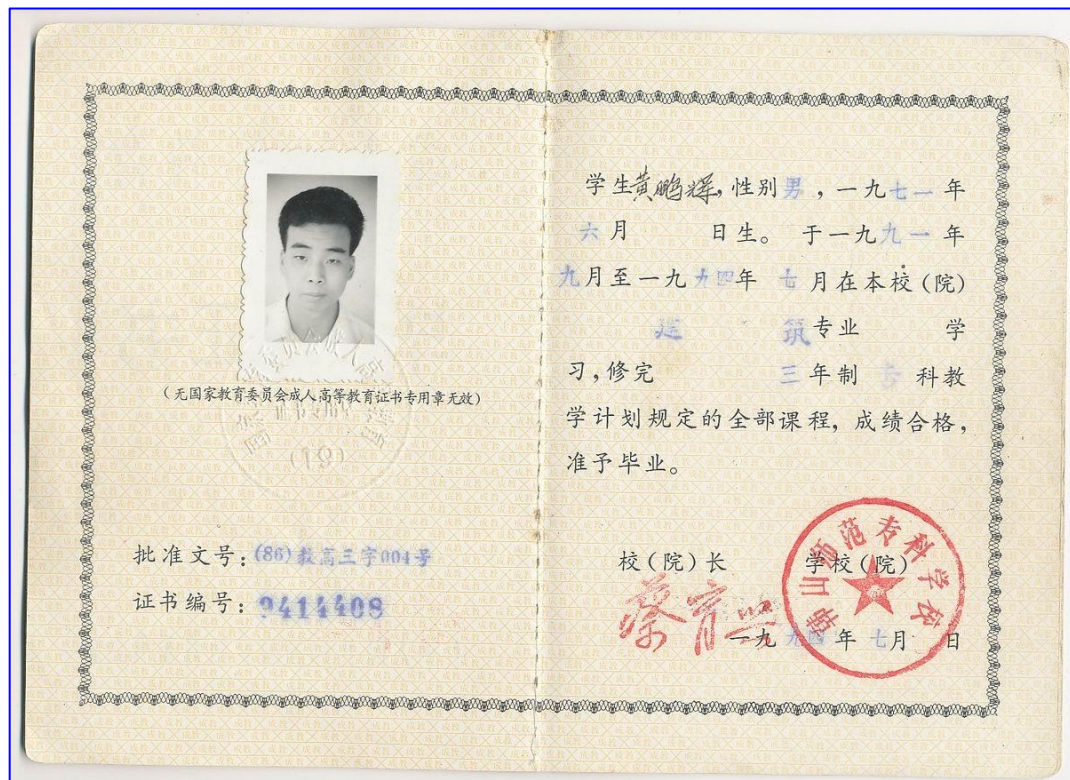 (无国家教育委员会成人高等教育证书专用章无效)
批准文号:(86)教高三字004号
证书编号:9414408
学生黄鹏辉,性别男,一九七一年
六月 日生。于一九九一年
九月至一九九四年 七月在本校(院)
建 筑专业 学
习,修完 三年制 专科教
学计划规定的全部课程,成绩合格,
准予毕业。
校(院)长 学校(院)
蔡育兴
韩山师范专科学校
一九九四年 七月 日